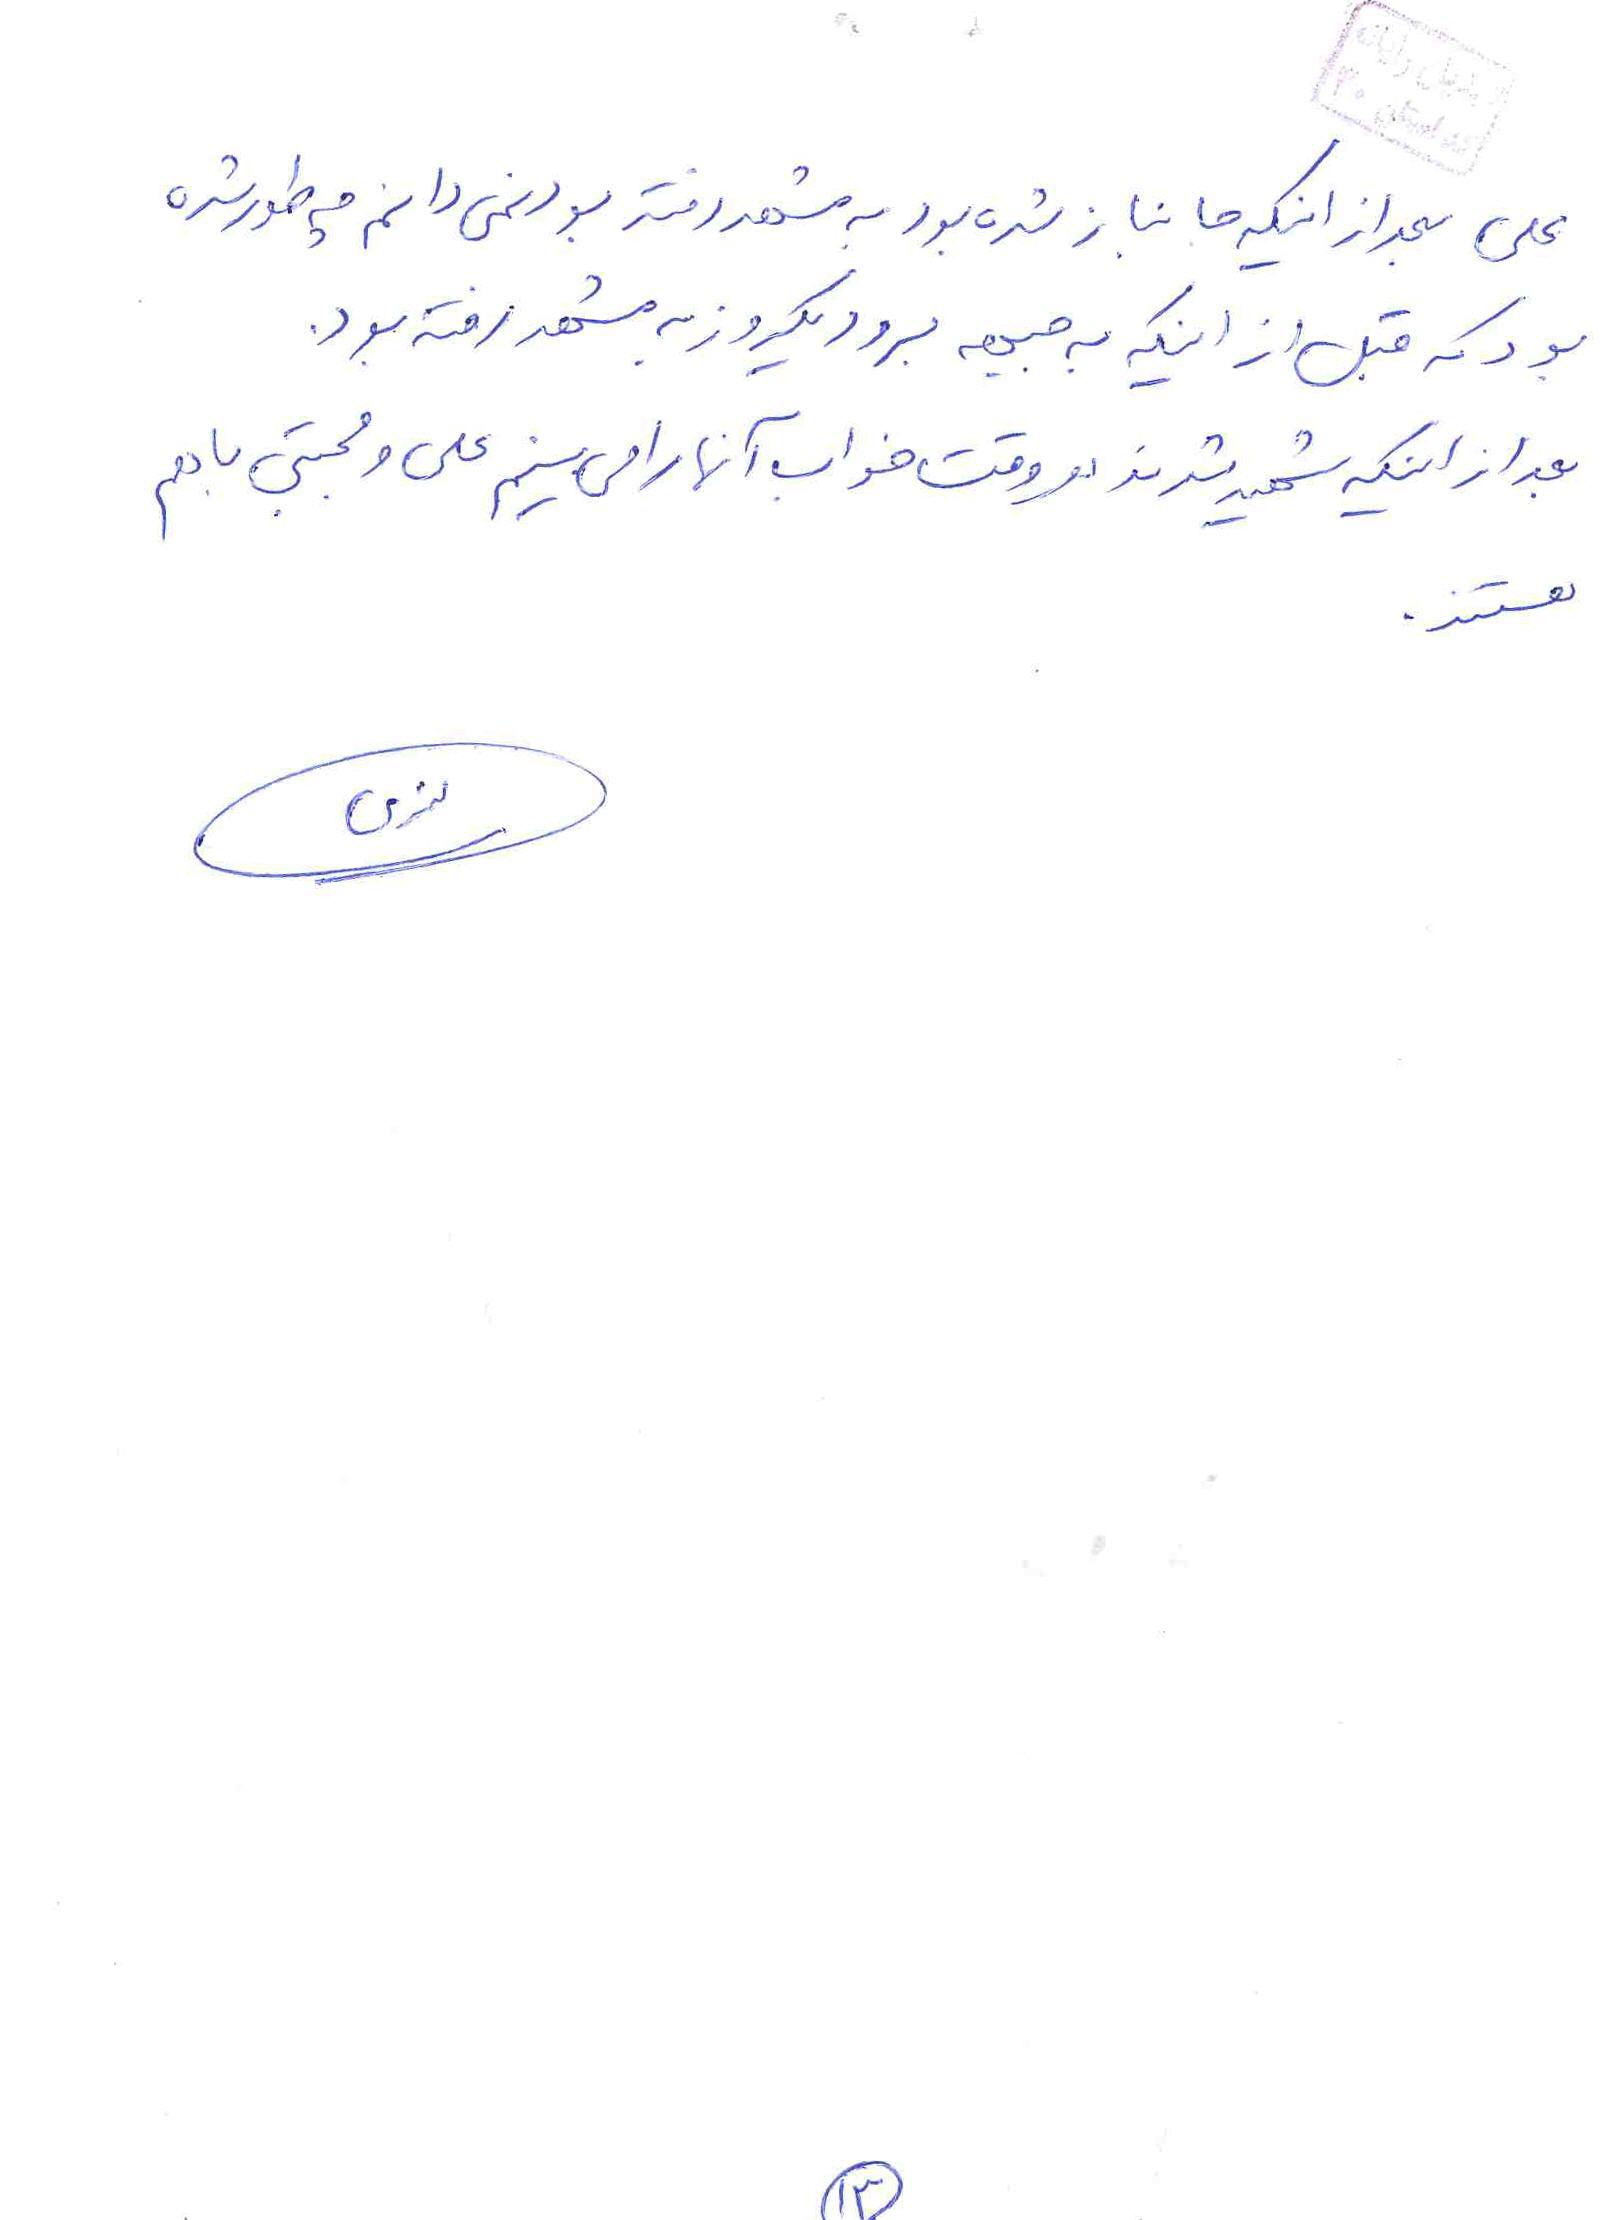 علی بعد از اینکه جانباز شده بود به مشهد رفته بود نمی دانم چه طور شده
بود که قبل از اینکه به جبهه برود یکروز به مشهد رفته بود.
بعد از اینکه شهید شدند هر وقت خواب آنها را می بینم علی و مجتبی با هم
هستند.
۱۳